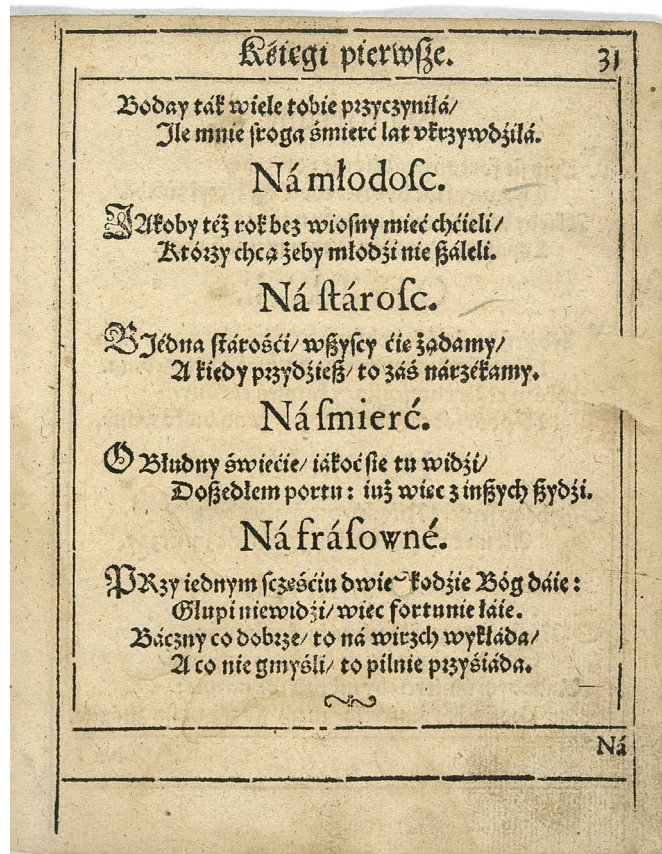 Kśięgi pierwſze. 31
Boday ták wiele tobie przyczyniłá/
Ile mnie ſroga śmierć lat vkrzywdźiłá.
Ná młodoſc.
JAkoby też rok bez wioſny mieć chćieli/
Którzy chcą żeby młodźi nie ſzáleli.
Ná ſtároſc.
BJédna ſtárośći/ wſzyſcy ćie żądamy/
A kiedy przydźieſz/ to záś nárzékamy.
Ná ſmierć.
O Błudny świećie/ iákoć ſie tu widźi/
Doſzedłem portu: iuż wiec z inſzych ſzydźi.
Ná fráſowné.
PRzy iednym ſczęśćiu dwie ſzkodźie Bóg dáie:
Głupi niewidźi/ wiec fortunie łáie.
Báczny co dobrze/ to ná wirzch wykłáda/
A co nie gmyśli/ to pilnie przyśiáda.
Ná